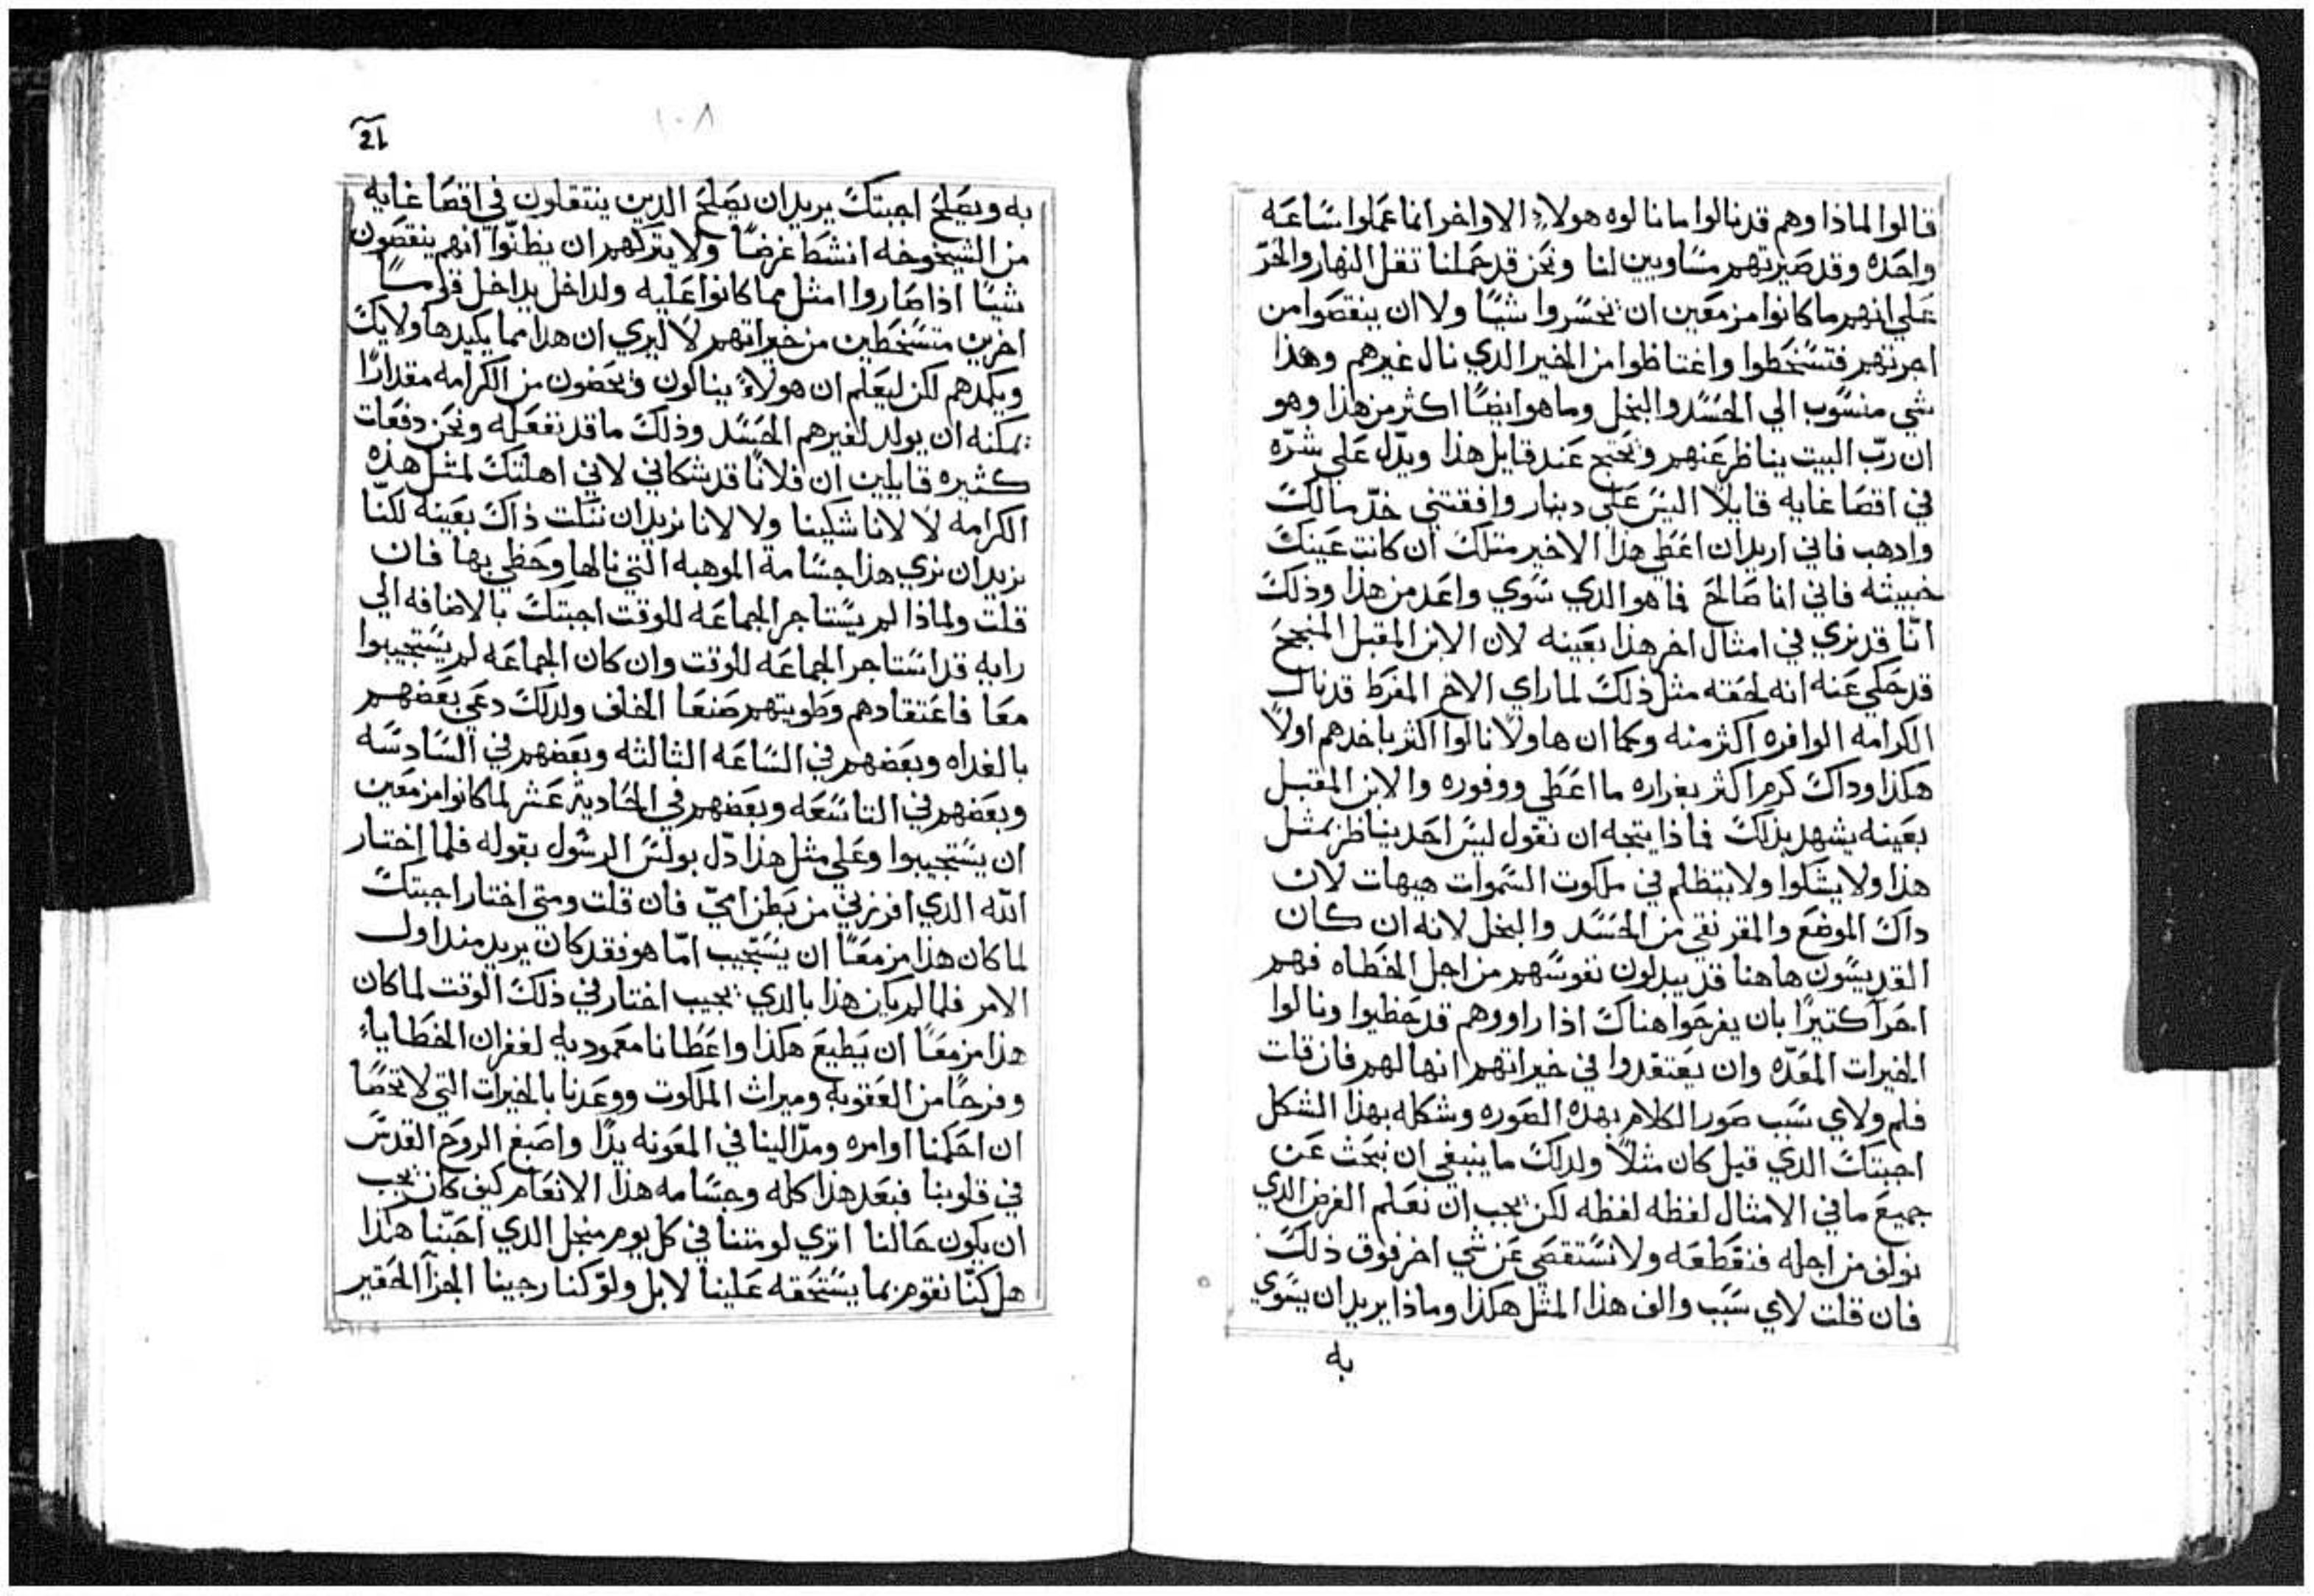 قالوا لماذا وهم قد نالوا ما نالوه هولاءِ الاواخر انما عملوا ساعه
واحده وقد صيرتهم مساويين لنا ونحن قد حملنا تقل النهار والحرّ
علي انهم ما كانوا مزمعين ان يخسروا شيًا ولا ان ينقصوا من
اجرتهم فتسخطوا واغتاظوا من الخير الدي نال غيرهم وهذا
شي منسوب الي الحسد والبخل وما هو ايضًا اكثر من هذا وهو
ان ربّ البيت يناظر عنهم ويحتج عند قايل هذا ويدّل علي شرّه
في اقصا غايه قايلًا اليس علي دينار وافقتني خدّ مالك
وادهب فاني اريد ان اعطي هذا الاخير متلك ان كانت عينك
خبيثه فاني انا صالح فما هو الدي سوي واعد من هذا وذلك
انّا قد نري في امثال اخر هذا بعينه لان الابن المقبل المنجح
قد حكي عنه انه لحقته مثل ذلك لما راي الاخ المفرط قد نال
الكرامه الوافره اكثر منه وكما ان هاولا نالوا اكثر باخدهم اولًا
هكذا وداك كرم اكثر بغزاره ما اعطي ووفوره والابن المقبل
بعينه يشهد بذلك فماذا يتجه ان نقول ليس احد يناظر بمثل
هذا ولا يشكوا ولا يتظلم في ملكوت السموات هيهات لان
داك الموضع والمقر نقي من الحسد والبخل لانه ان كان
القديسون هاهنا قد يبدلون نفوسهم من اجل الخطاه فهم
احرا كتيرًا بان يفرحوا هناك اذا راووهم قد حظيوا ونالوا
الخيرات المعدّه وان يعتقدوا في خيراتهم انها لهم فان قلت
فلم ولاي سبب صور الكلام بهده الصوره وشكله بهذا الشكل
اجبتك الدي قيل كان مثلًا ولدلك ما ينبغي ان نبحث عن
جميع ما في الامثال لفظه لفظه لكن يجب ان نعلم الغرض الدي
نولف من اجله فنقطعه ولا نستقصي عن شي اخر فوق ذلك
فان قلت لاي سبب والف هذا المثل هكذا وماذا يريد ان يسوي
به
١٠٨
به ويصلح اجبتك يريد ان يصلح الدين ينتقلون في اقصا غايه
من الشيخوخه انشط غرضًا ولا يتركهم ان يظنّوا انهم ينقصون
شيًا اذا صاروا امثل مما كانوا عليه ولداخل يداخل قومًا
اخرين متسخطين من خيراتهم لا ليري ان هدا مما يكيدها ولايك
ويكمدهم لكن ليعلم ان هولاءِ ينالون ويحضون من الكرامه مقدارًا
يمكنه ان يولد لغيرهم الحسد وذلك ما قد نفعله ونحن دفعات
كثيره قايلين ان فلانًا قد شكاني لاني اهلتك لمثل هذه
الكرامه لا لانا شكينا ولا لانا نريد ان نتلت ذاك بعينه لكنّا
نريد ان نري هذا جسامة الموهبه التي نالها وحظي بها فان
قلت ولماذا لم يستاجر الجماعه للوقت اجبتك بالاضافه الي
رايه قد استاجر الجماعه للوقت وان كان الجماعه لم يستجيبوا
معا فاعتقادهم وطويتهم صنعا الخلف ولدلك دعي بعضهم
بالغداه وبعضهم في الساعه الثالثه وبعضهم في السادسه
وبعضهم في التاسعه وبعضهم في الحادية عشر لما كانوا مزمعين
ان يستجيبوا وعلي مثل هذا دّل بولس الرسول بقوله فلما اختار
الله الدي افرزني من بطن اميّ فان قلت ومتي اختار اجبتك
لما كان هذا مزمعًا ان يستجيب امّا هو فقد كان يريد مند اول
الامر فلما لم يكن هذا بالدي يجيب اختار في ذلك الوقت لما كان
هذا مزمعًا ان يطيع هكذا واعطانا معموديه لغفران الخطاياءِ
وفرحًا من العقوبه وميراث الملكوت ووعدنا بالخيرات التي لا تحصا
ان احكمنا اوامره ومدّ الينا في المعونه يدًا واصبغ الروح القدس
في قلوبنا فبعد هذا كله وجسامه هذا الانعام كيف كان يجب
ان يكون حالنا اتري لو متنا في كل يوم من اجل الدي احبّنا هكذا
هل كنّا نقوم بما يستحقه علينا لا بل ولوّ كنا رجينا الجزآ الحقير